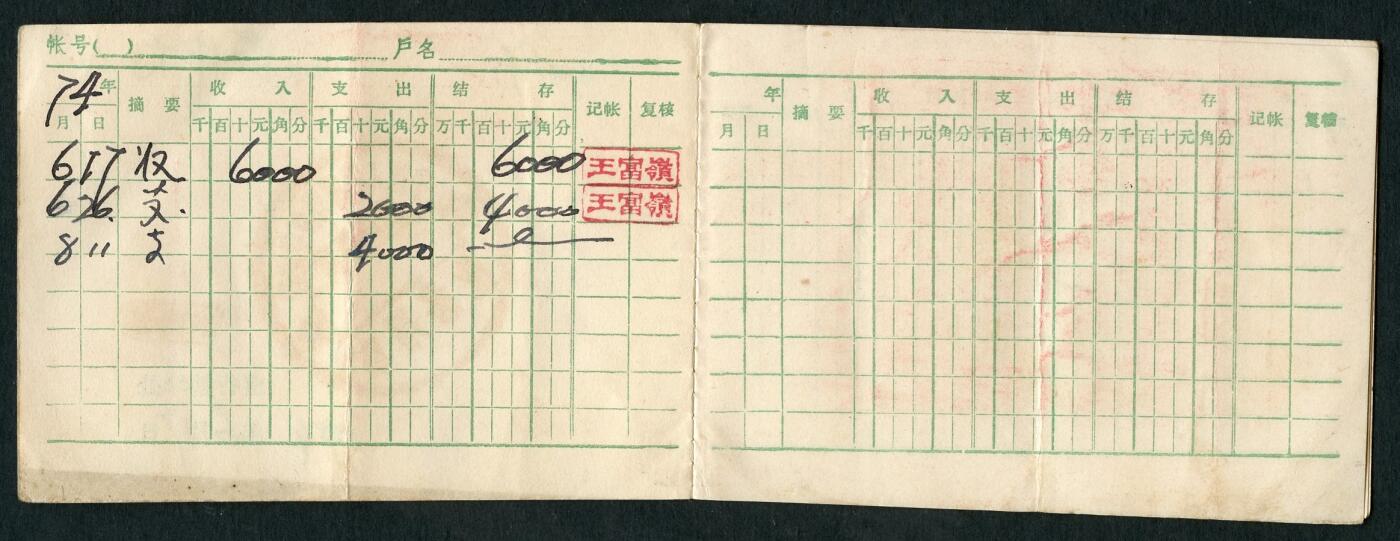 帐号( ) 戶名
74年 摘要 收入 支出 结存 记帐 复核
月 日 千百十元角分 千百十元角分 万千百十元角分
6 17 收 6000 6000 王富嶺
6 26 支 2000 4000 王富嶺
8 11 支 4000
年 摘要 收入 支出 结存 记帐 复核
月 日 千百十元角分 千百十元角分 万千百十元角分